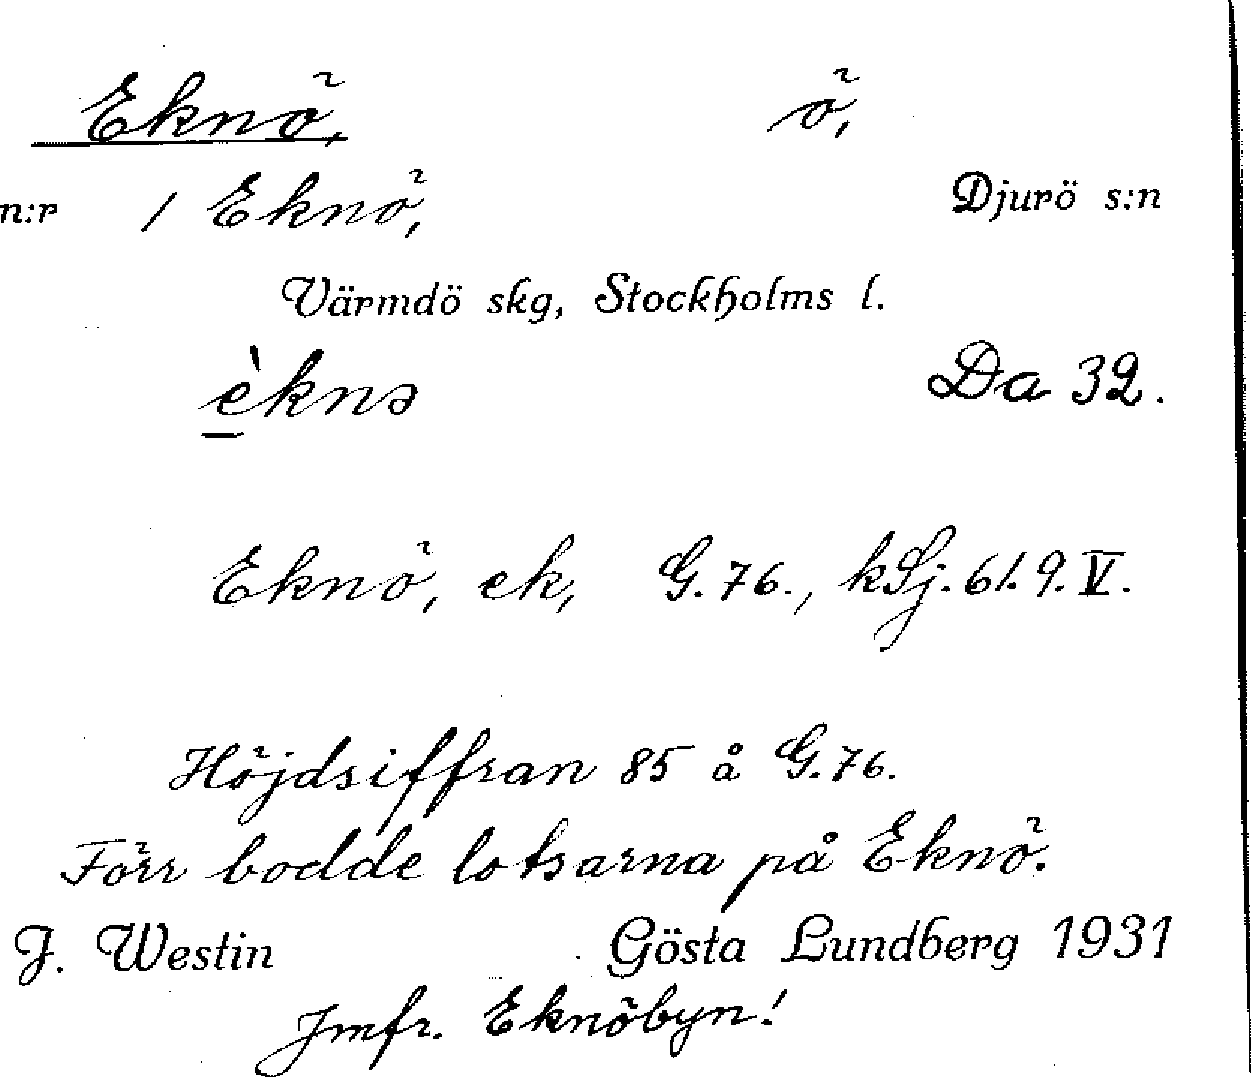 Eknö, ö,
n:r 1 Eknö, Djurö s:n
Värmdö skg, Stockholms l.
è̱knə Da 32.
Eknö, ek, G.76., kSj.61.9.V.
Höjdsiffran 85 å G.76.
Förr bodde lotsarna på Eknö.
J. Westin Gösta Lundberg 1931
Jmfr. Eknöbyn!